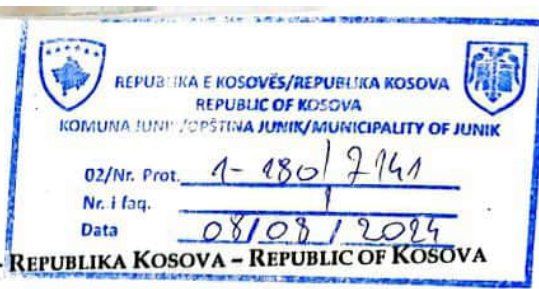 REPUBLIKA E KOSOVËS/REPUBLIKA KOSOVA
REPUBLIC OF KOSOVA
KOMUNA JUNIK/OPŠTINA JUNIK/MUNICIPALITY OF JUNIK
02/Nr. Prot. 1-180/7141
Nr. i faq. 1
Data 08/08/2024
- REPUBLIKA KOSOVA – REPUBLIC OF KOSOVA